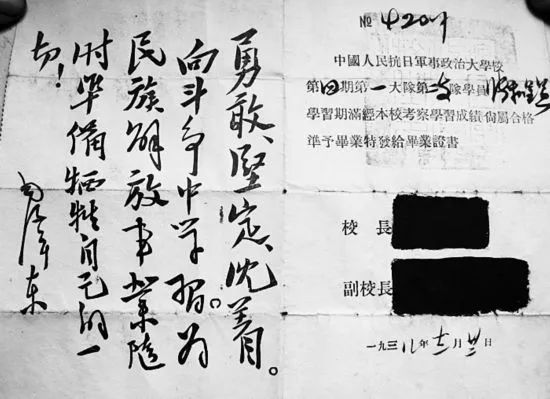 勇敢、堅定、沈着。
向斗爭中学習。为
民族解放事業隨
时準備牺牲自己的一
切！
毛泽东
№
中國人民抗日軍事政治大學校
第四期第一大隊第隊學員
學習期滿經本校考察學習成績尚屬合格
準予畢業特發給畢業證書
校長
副校長
一九三八年十二月日